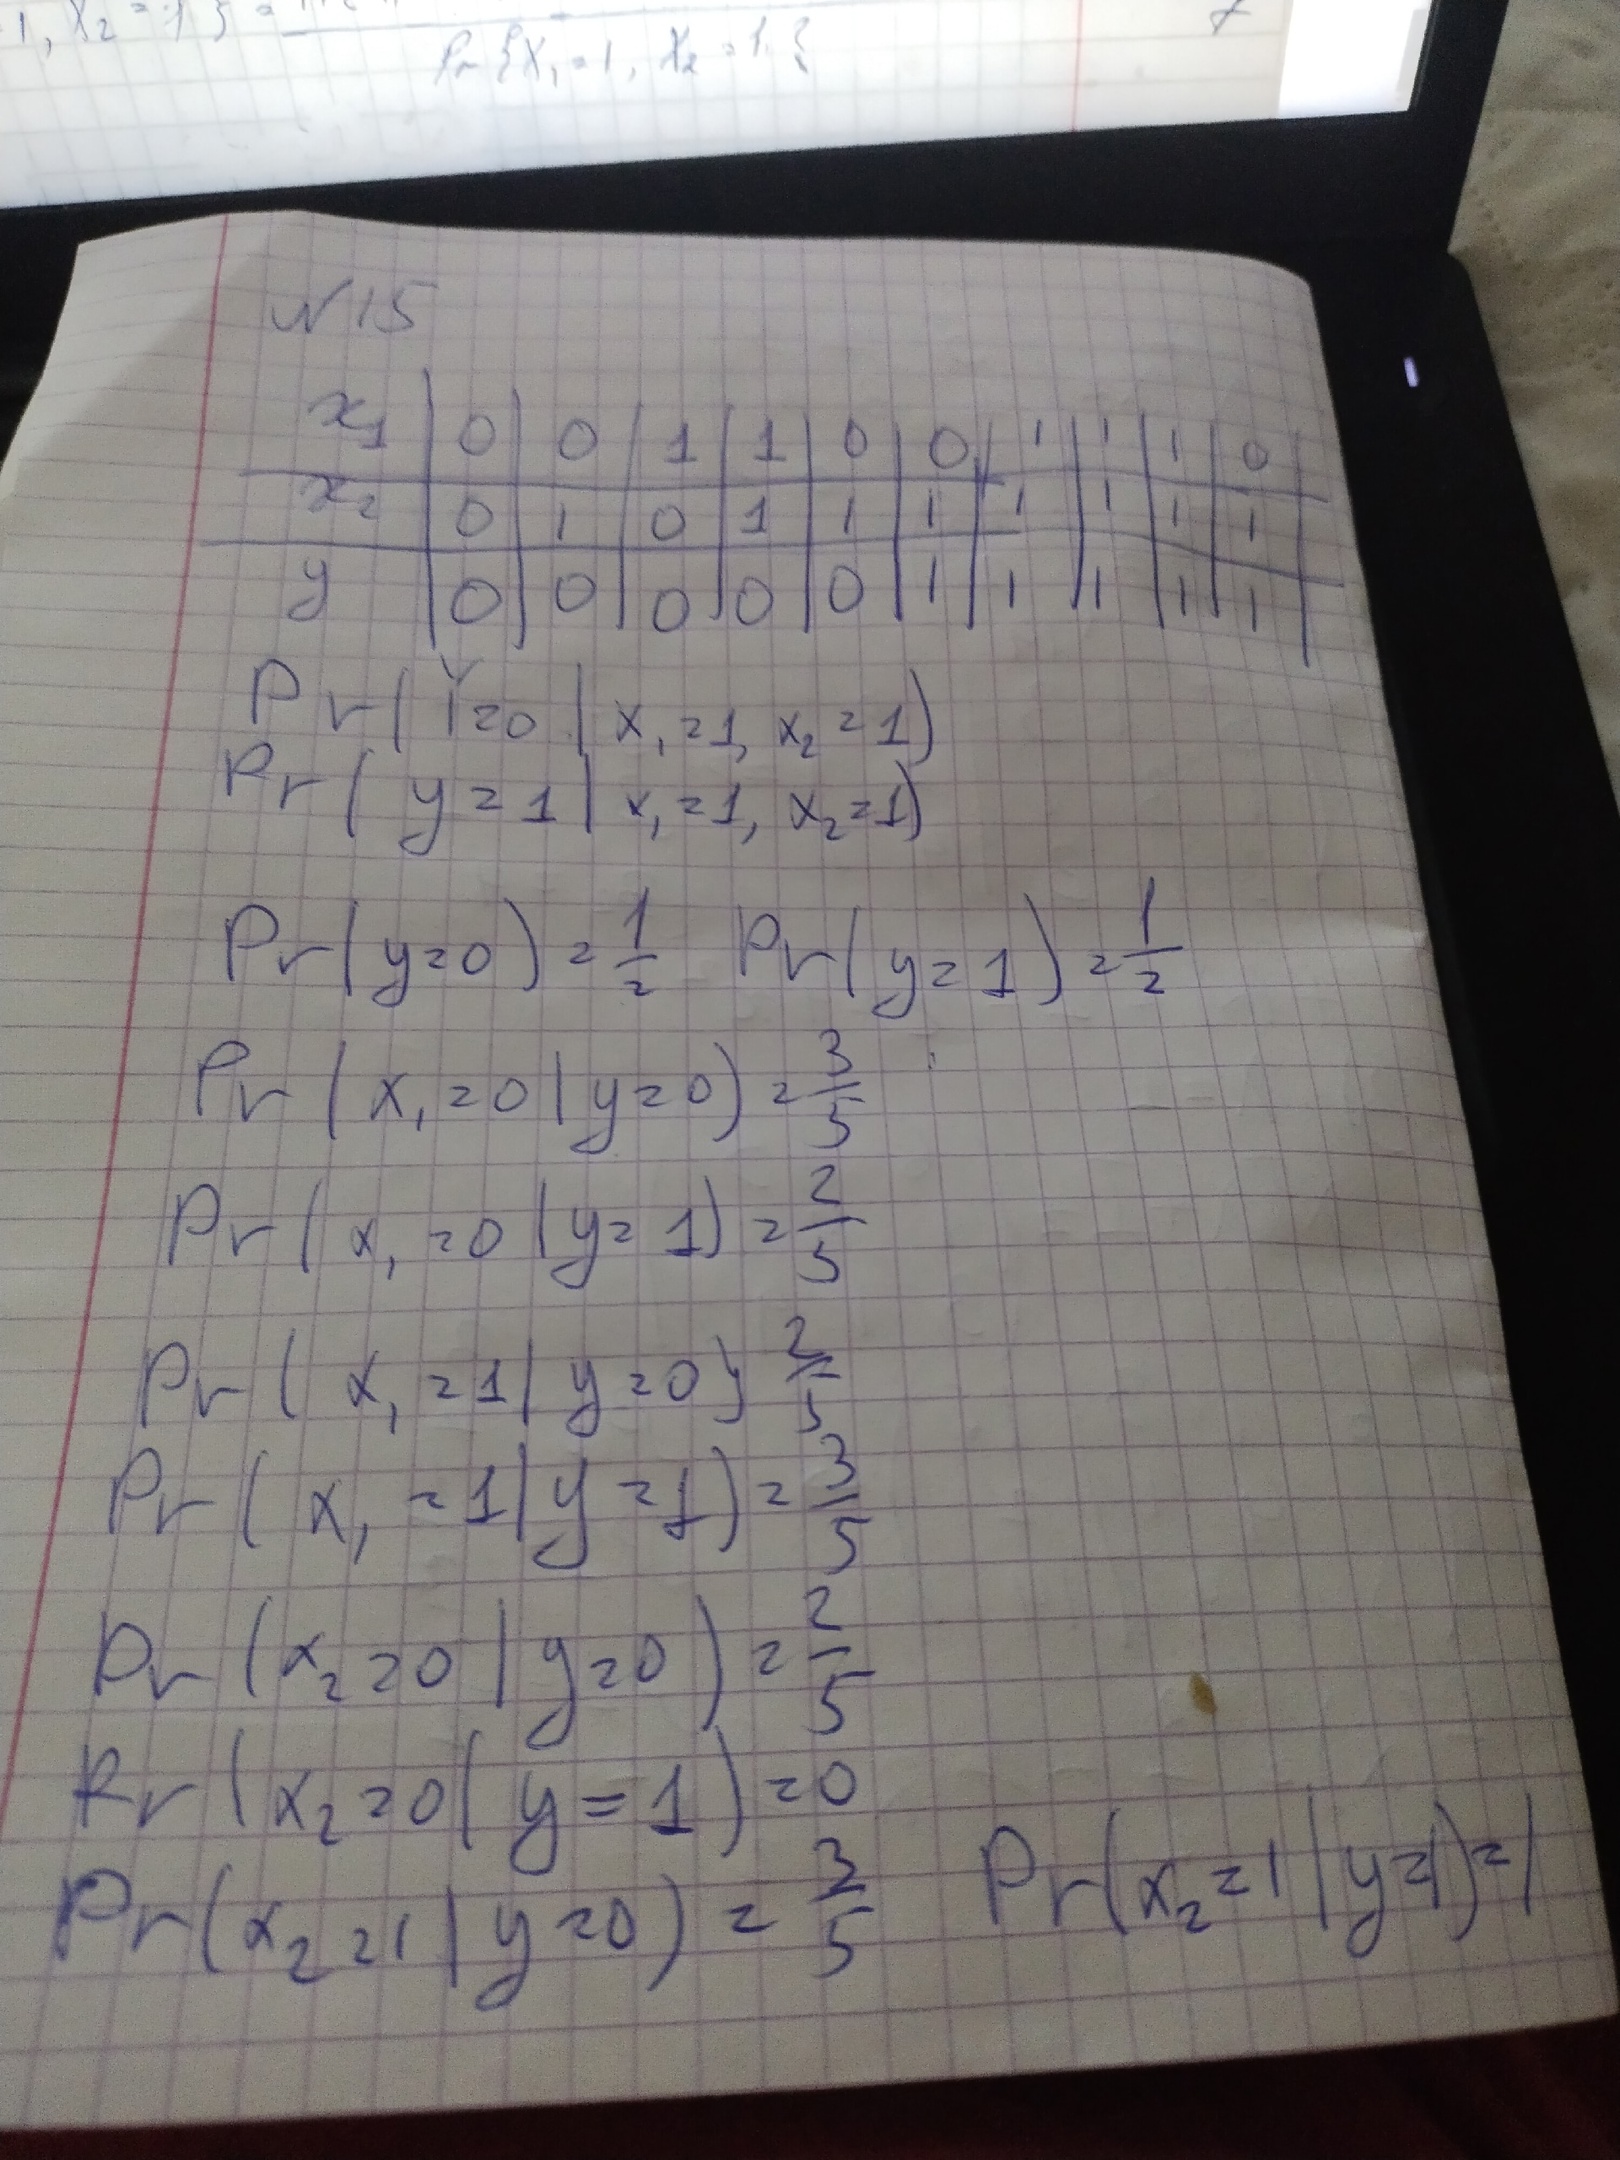 1, X₂ = 1 } =
Pr{X₁ = 1, X₂ = 1}
N 15
x₁ | 0 | 0 | 1 | 1 | 0 | 0 | 1 | 1 | 1 | 0
x₂ | 0 | 1 | 0 | 1 | 1 | 1 | 1 | 1 | 1 | 1
y | 0 | 0 | 0 | 0 | 0 | 1 | 1 | 1 | 1 | 1
Pr(Y=0 | x₁=1, x₂=1)
Pr(y=1 | x₁=1, x₂=1)
Pr(y=0) = 1/2 Pr(y=1) = 1/2
Pr(x₁=0 | y=0) = 3/5
Pr(x₁=0 | y=1) = 2/5
Pr(x₁=1 | y=0} = 2/5
Pr(x₁=1 | y=1) = 3/5
Pr(x₂=0 | y=0) = 2/5
Pr(x₂=0 ( y=1) = 0
Pr(x₂=1 | y=0) = 3/5 Pr(x₂=1 | y=1) = 1